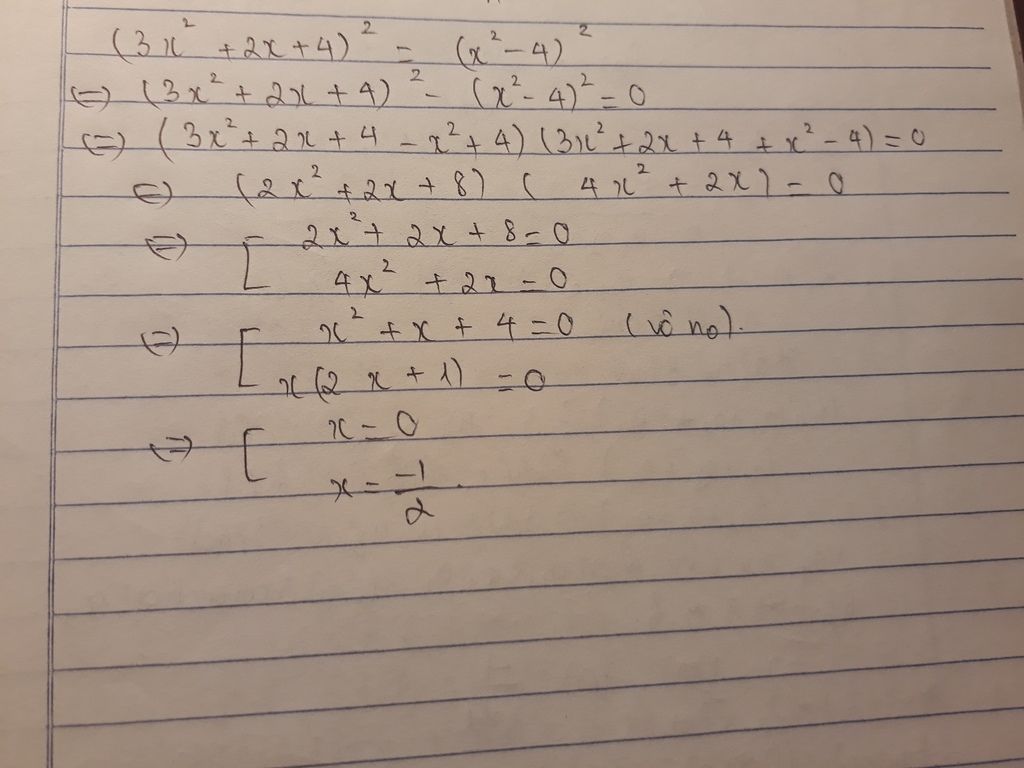 (3x² + 2x + 4)² = (x² - 4)²
⇔ (3x² + 2x + 4)² - (x² - 4)² = 0
⇔ (3x² + 2x + 4 - x² + 4) (3x² + 2x + 4 + x² - 4) = 0
⇔ (2x² + 2x + 8) ( 4x² + 2x) = 0
⇔ [ 2x² + 2x + 8 = 0
4x² + 2x = 0
⇔ [ x² + x + 4 = 0 (vô no).
x(2x + 1) = 0
⇔ [ x = 0
x = -1/2.